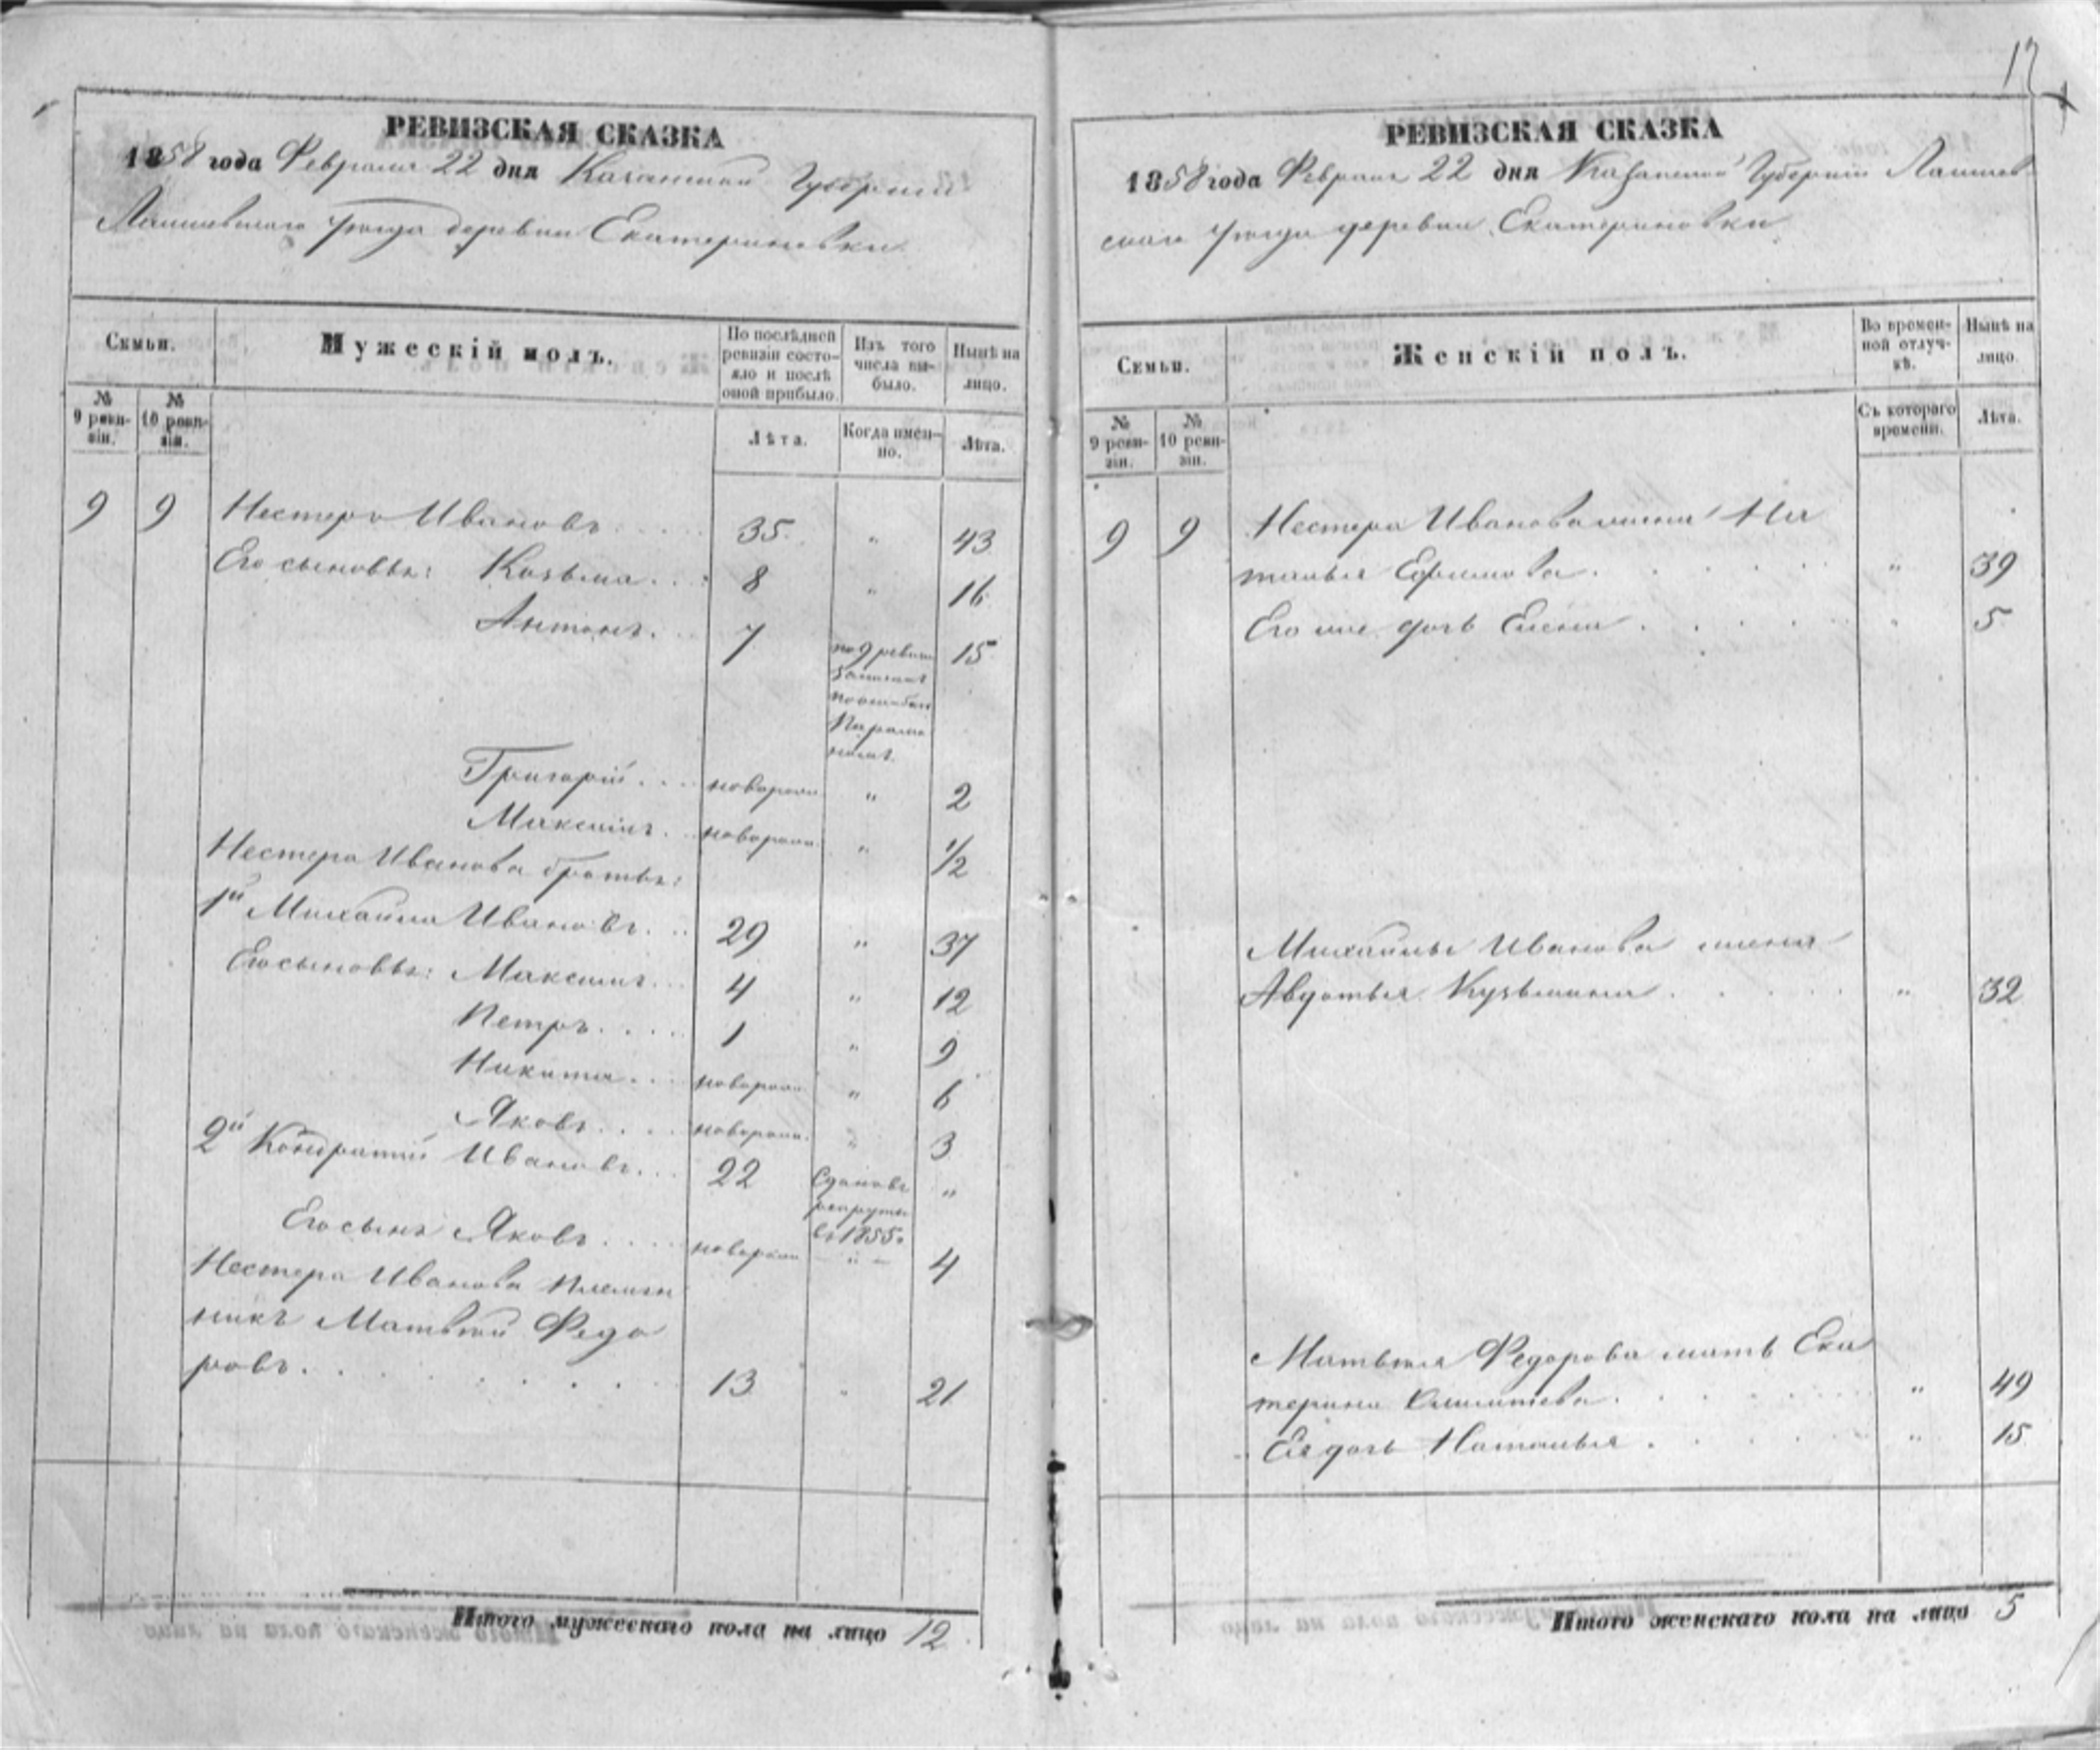 12
РЕВИЗСКАЯ СКАЗКА
1858 года Февраля 22 дня Казанской Губернии
Лаишевскаго уѣзда деревни Екатериновки
Семьи.
Мужескій полъ.
По послѣдней ревизіи состояло и послѣ оной прибыло.
Изъ того числа выбыло.
Нынѣ на лицо.
№ 9 ревизіи.
№ 10 ревизіи.
Лѣта.
Когда именно.
Лѣта.
9 9 Нестеръ Ивановъ 35 " 43
Его сыновья: Козьма 8 " 16
Антонъ 7 по 9 ревизіи 15
записанъ
по ошибкѣ
Парамо
номъ
Григорій новорожд. " 2
Максимъ новорожд. " 1/2
Нестера Иванова братья:
1й Михаила Ивановъ 29 " 37
Его сыновья: Максимъ 4 " 12
Петръ 1 " 9
Никита новорожд. " 6
Яковъ новорожд. " 3
2й Кондратій Ивановъ 22 Сданъ въ "
рекруты
въ 1855 г.
Его сынъ Яковъ новорожд. " 4
Нестера Иванова племян
никъ Матвѣй Федо
ровъ 13 " 21
Итого мужескаго пола на лицо 12
РЕВИЗСКАЯ СКАЗКА
1858 года Февраля 22 дня Казанской Губерніи Лаишев
скаго уѣзда деревни Екатериновки
Семьи.
Женскій полъ.
Во временной отлучкѣ.
Нынѣ на лицо.
№ 9 ревизіи.
№ 10 ревизіи.
Съ котораго времени.
Лѣта.
9 9 Нестера Иванова жена На
талья Ефимова " 39
Его же дочь Елена " 5
Михайлы Иванова жена
Авдотья Кузьмина " 32
Матвѣя Федорова мать Ека
терина " 49
Ея дочь Наталья " 15
Итого женскаго пола на лицо 5